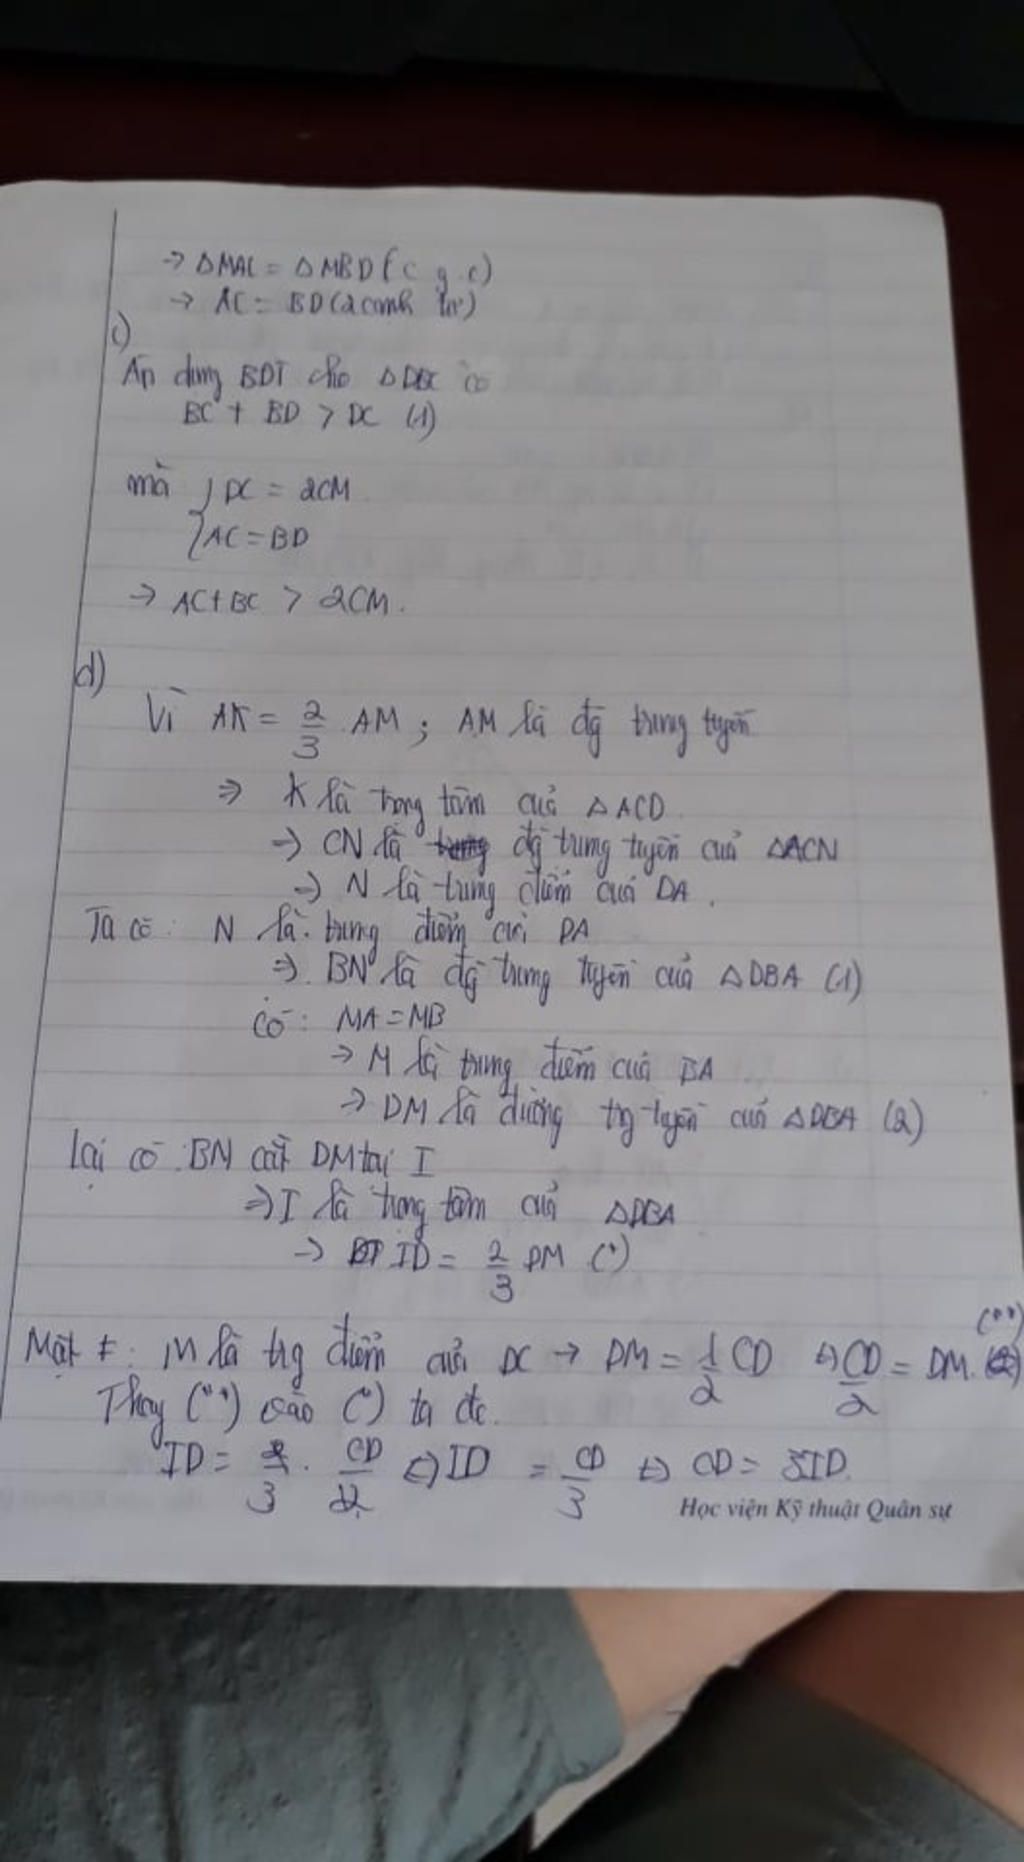 → ΔMAC = ΔMBD (c g.c)
→ AC = BD (2 cạnh tư)
c)
Áp dụng BĐT cho ΔDBC có
BC + BD > DC (1)
mà { DC = 2CM
AC = BD
→ AC+BC > 2CM.
d)
Vì AK = 2/3 AM ; AM là đg trung tuyến
⇒ K là trọng tâm của ΔACD
→ CN là đg trung tuyến của ΔACN
→ N là trung điểm của DA.
Ta có: N là trung điểm của DA
⇒ BN là đg trung tuyến của ΔDBA (1)
Có: MA = MB
→ M là trung điểm của BA
→ DM là đường trg tuyến của ΔDBA (2)
Lại có: BN cắt DM tại I
⇒ I là trọng tâm của ΔDBA
→ ID = 2/3 DM (*)
Mặt ≠: M là trg điểm của DC → DM = 1/2 CD ⇔ CD/2 = DM. (**)
Thay (**) vào (*) ta đc.
ID = 2/3 . CD/2 ⇔ ID = CD/3 ⇔ CD = 3ID.
Học viện Kỹ thuật Quân sự